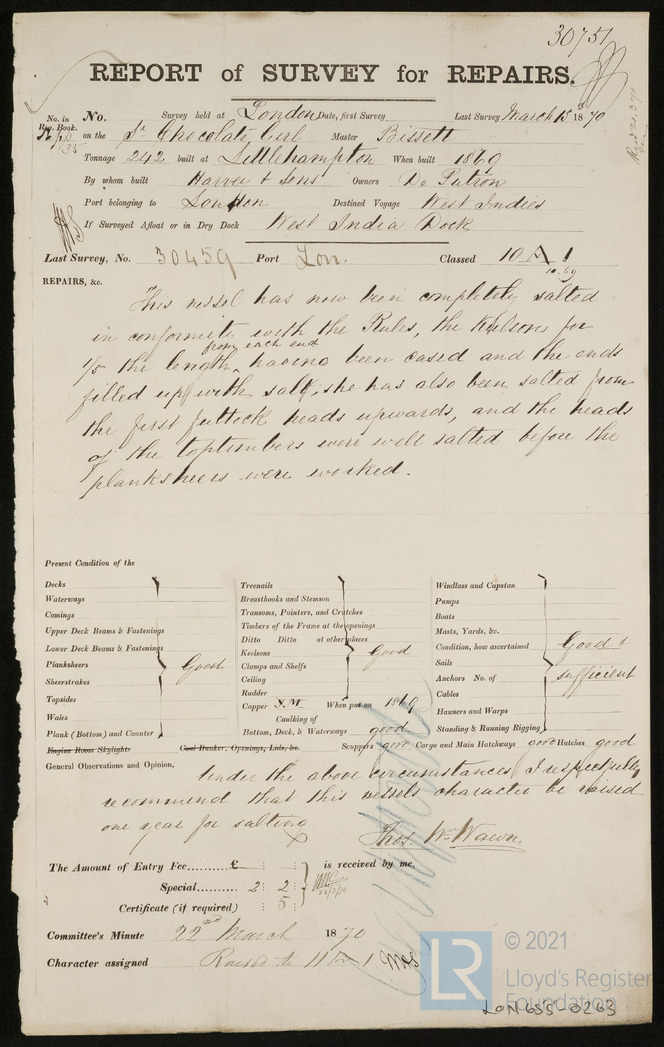 30751
REPORT of SURVEY for REPAIRS.
No. in Reg. Book.
No. Survey held at London Date, first Survey Last Survey March 15th 1870
on the Sr Chocolate Girl Master Bissett
Tonnage 242 built at Littlehampton When built 1869
By whom built Harvey & Sons Owners De Putron
Port belonging to London Destined Voyage West Indies
If Surveyed Afloat or in Dry Dock West India Dock
Last Survey, No. 30459 Port Lon. Classed 10 A 1
10.69
REPAIRS, &c.
This vessel has now been completely salted
in conformity with the Rules, the Keelsons for
from each end
1/5 the length, having been cased and the ends
filled up with salt, she has also been salted from
the first futtock heads upwards, and the heads
of the toptimbers were well salted before the
planksheers were worked.
Present Condition of the
Decks
Waterways
Comings
Upper Deck Beams & Fastenings
Lower Deck Beams & Fastenings
Planksheers Good
Sheerstrakes
Topsides
Wales
Plank (Bottom) and Counter
Engine Room Skylights
Treenails
Breasthooks and Stemson
Transoms, Pointers, and Crutches
Timbers of the Frame at the openings
Ditto Ditto at other places
Keelsons good
Clamps and Shelfs
Ceiling
Rudder
Copper Y.M. When put on 1869
Caulking of
Bottom, Deck, & Waterways good
Coal Bunker, Openings, Lids, &c.
Scuppers good
Windlass and Capstan
Pumps
Boats
Masts, Yards, &c.
Condition, how ascertained Good &
Sails
Anchors No. of sufficient
Cables
Hawsers and Warps
Standing & Running Rigging
Cargo and Main Hatchways good Hatches good
General Observations and Opinion,
Under the above circumstances I respectfully
recommend that this vessels character be raised
one year for salting
Thos. Wm Wawn.
The Amount of Entry Fee......... £ : : is received by me,
Special.......... 2 : 2 :
Certificate (if required) : 5 :
22/3/70
Committee's Minute 22nd March 1870
Character assigned Raised to 11 A 1
© 2021
LR
Lloyd's Register
Foundation
LON655-0263